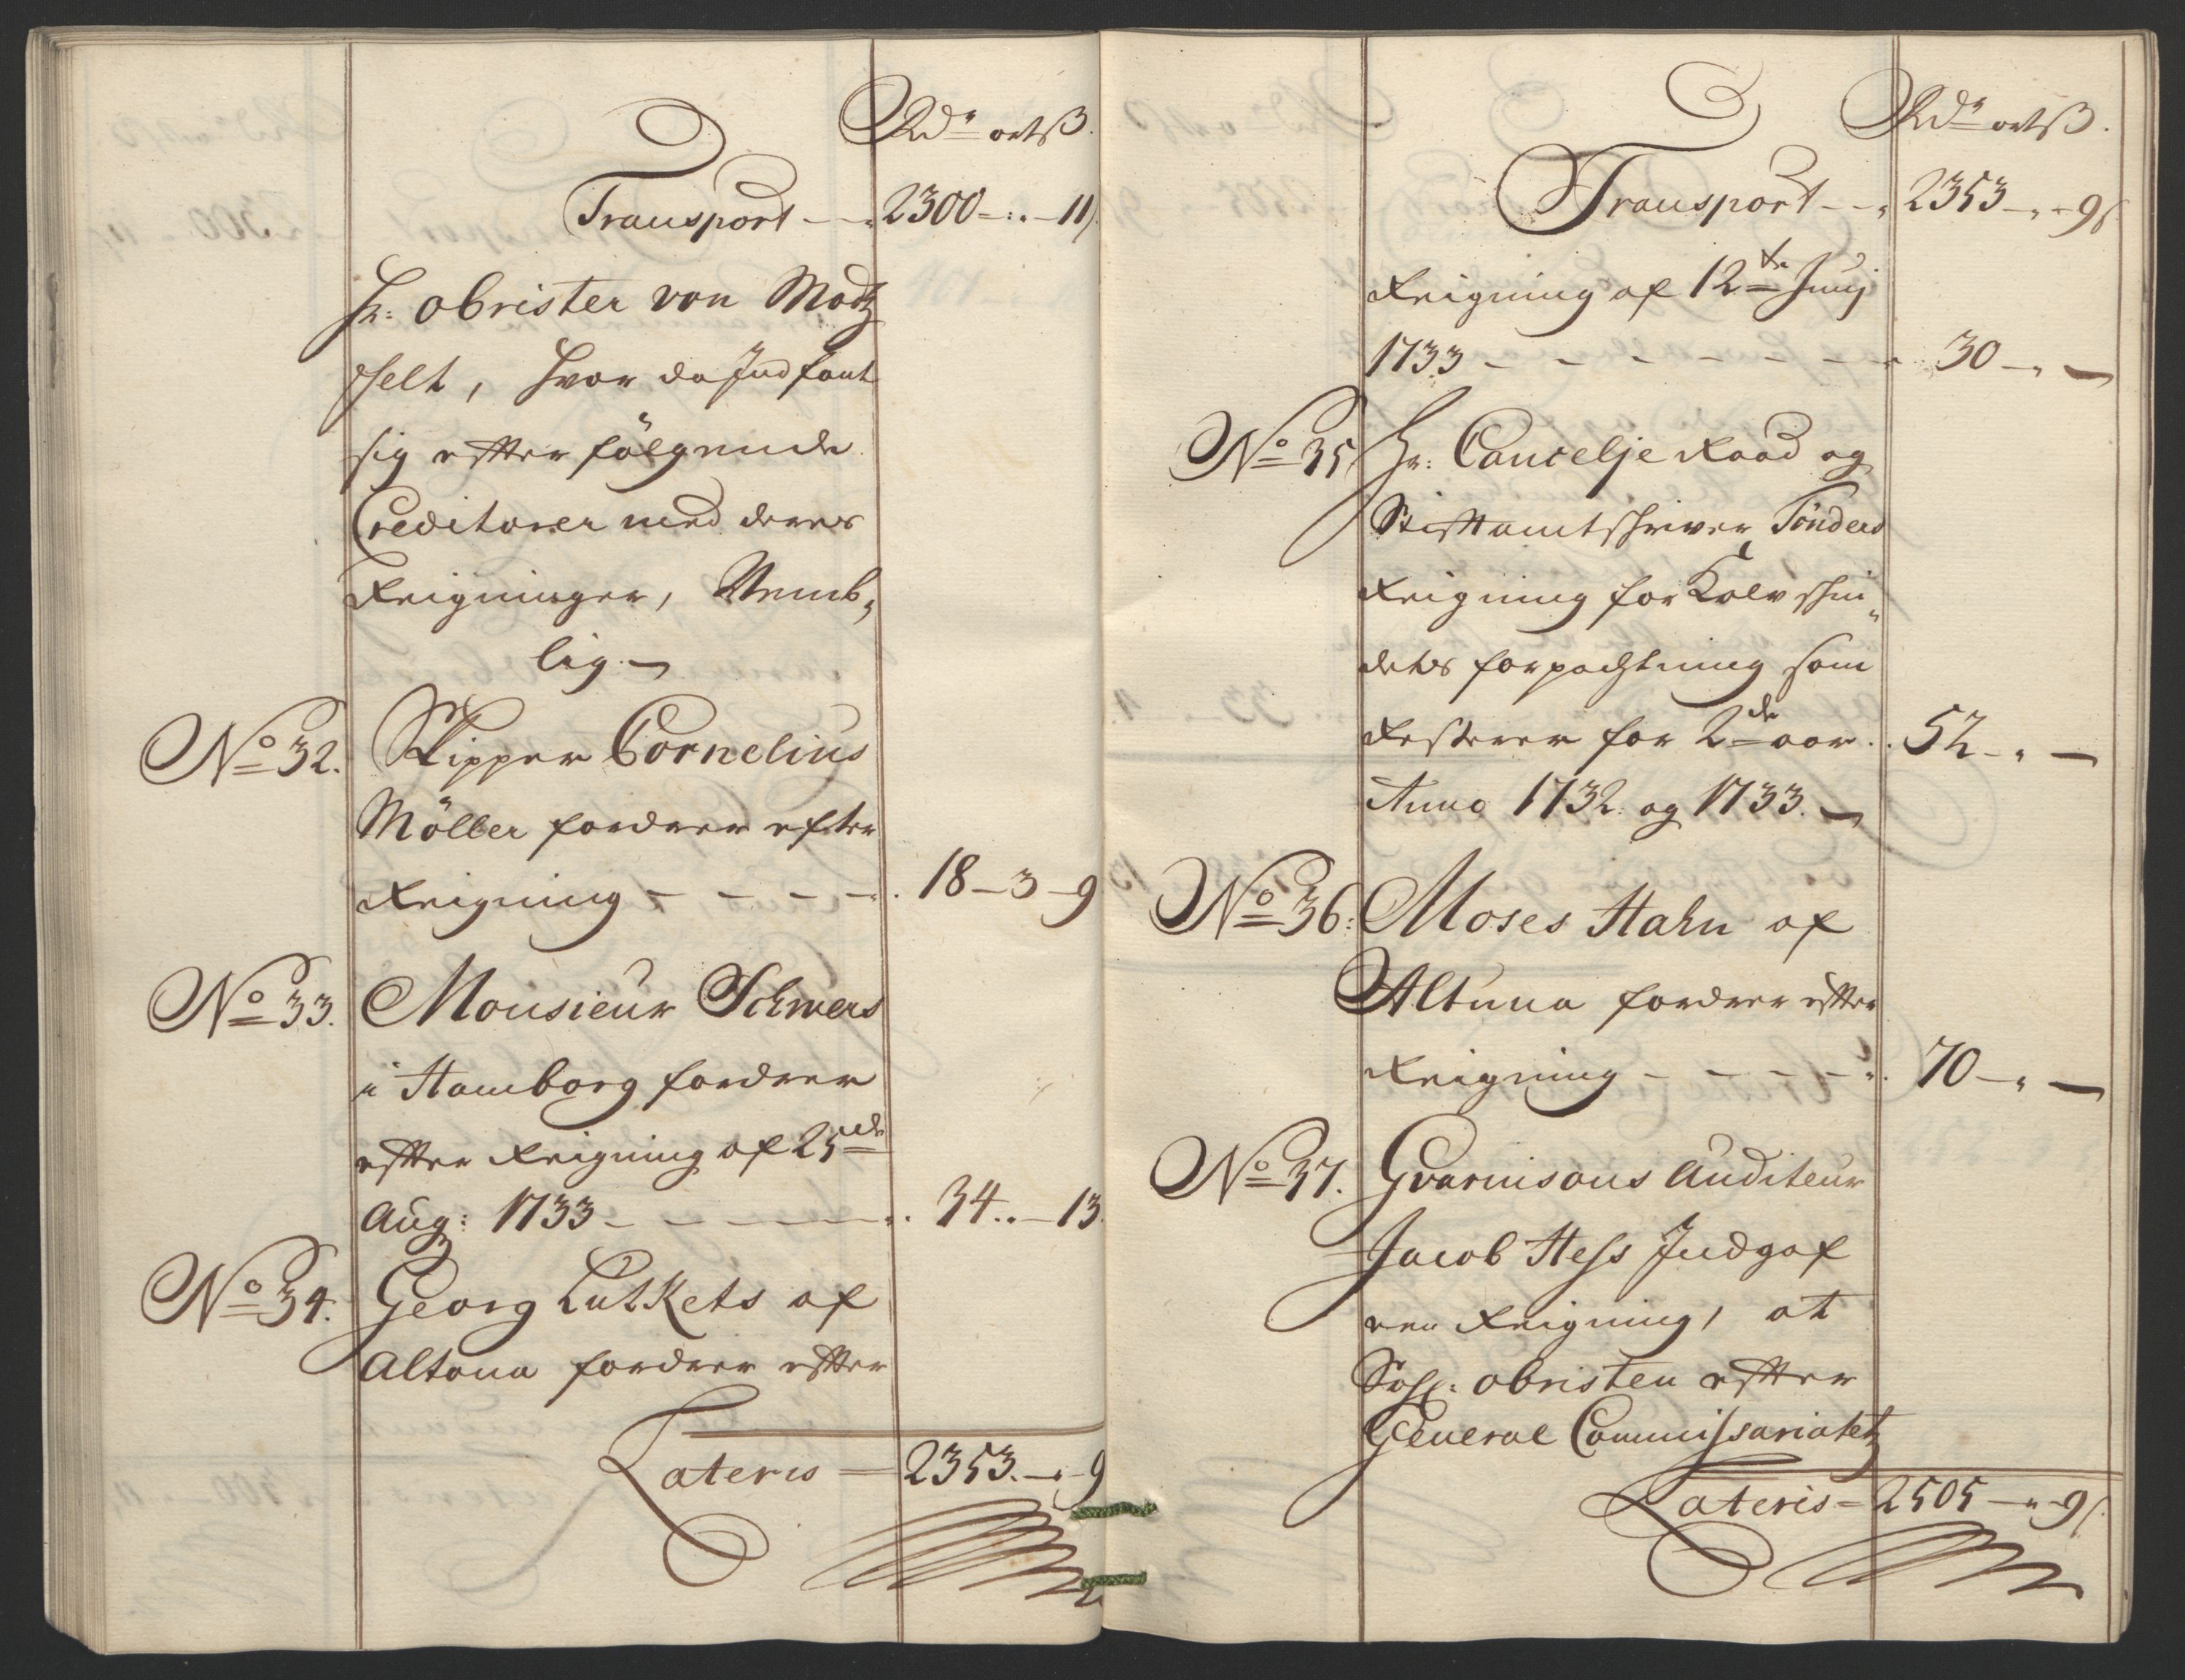 Rdr ort ß.
Transport - - 2300 - : - 11ß
Hr: obrister von Motz
felt, hvor da Indfant
sig effter fölgende
Creditorer med deres
Reigninger, Nemb,
lig. -
No 32. Skipper Cornelius
Möller fordrer efter
Reigning - - - - 18 - 3 - 9
No 33. Monsieur Schwers
i Hamborg fordrer
effter Reigning af 25de
Aug: 1733 - - - - 34 .. - 13.
No 34. Georg Lutkets af
Altona fordrer effter
Lateris = 2353. - " - 9
Rdr ort ß.
Transport - - 2353 - " - 9ß
Reigning af 12te Junj
1733 - - - - - - - 30 - " -
No 35 Hr: Cancelje Raad og
Stifftamtschriver Tönders
Reigning for Kalvskin,
dets forpachtning som
Resterer for 2de aar . . 52 - " -
Anno 1732 og 1733. -
No 36: Moses Hahn af
Altuna fordrer effter
Reigning - - - - - 70 - " -
No 37. Gvarnisons Auditeur
Jacob Hess Indgaf
een Reigning, at
Sahl: obristen effter
General Commissariatetz
Lateris = 2505 - " - 9ß.